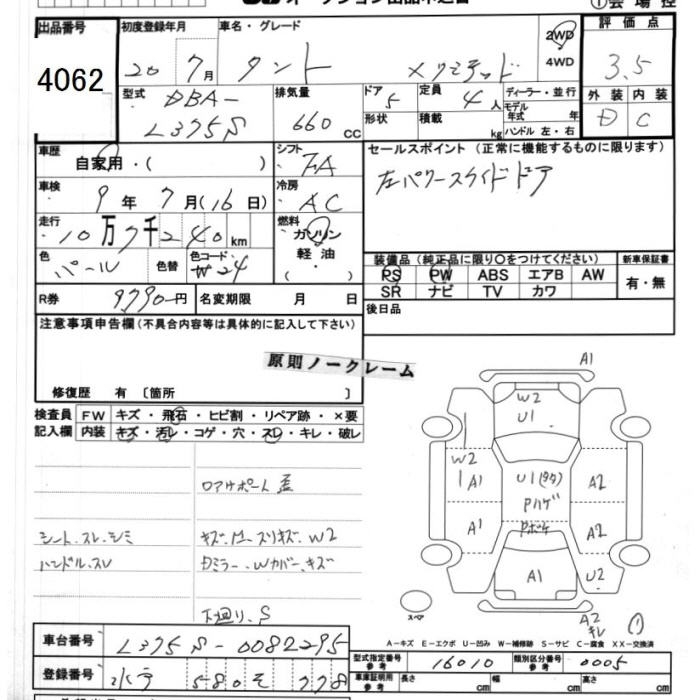 ①会場控
出品番号
4062
初度登録年月
20 7月
車名・グレード
タント
2WD
4WD
評価点
3.5
型式
DBA-
L375S
排気量
660 cc
ドア 5
形状
定員 4人
積載 kg
ディーラー・並行
モデル年式 年
ハンドル 左・右
外装 内装
D C
車歴
自家用・( )
シフト
FA
セールスポイント (正常に機能するものに限ります)
左パワースライドドア
車検
9年 7月(16日)
冷房
AC
走行
10万7千240km
燃料
ガソリン
軽油
( )
色
パール
色替
色コード
W24
装備品 (純正品に限り〇をつけてください)
新車保証書
PS PW ABS エアB AW
有・無
SR ナビ TV カワ
R券
9790円
名変期限 月 日
後日品
注意事項申告欄(不具合内容等は具体的に記入して下さい)
原則ノークレーム
修復歴 有 〔箇所 〕
検査員記入欄
FW キズ・飛石・ヒビ割・リペア跡・×要
内装 キズ・汚レ・コゲ・穴・スレ・キレ・破レ
ロアサポート歪
シート、スレ、シミ
ハンドル、スレ
下廻り、S
A1
W2
U1
W2
A1
U1
Pハゲ
Pボケ
A2
A1
A2
A1
U2
A2
キレ
スペア
A-キズ E-エクボ U-凹み W-補修跡 S-サビ C-腐食 XX-交換済
車台番号
L375S-0082295
登録番号
水戸 580 そ 778
型式指定番号 参考
16010
類別区分番号 参考
0005
車庫証明 参考
長さ cm
幅 cm
高さ cm